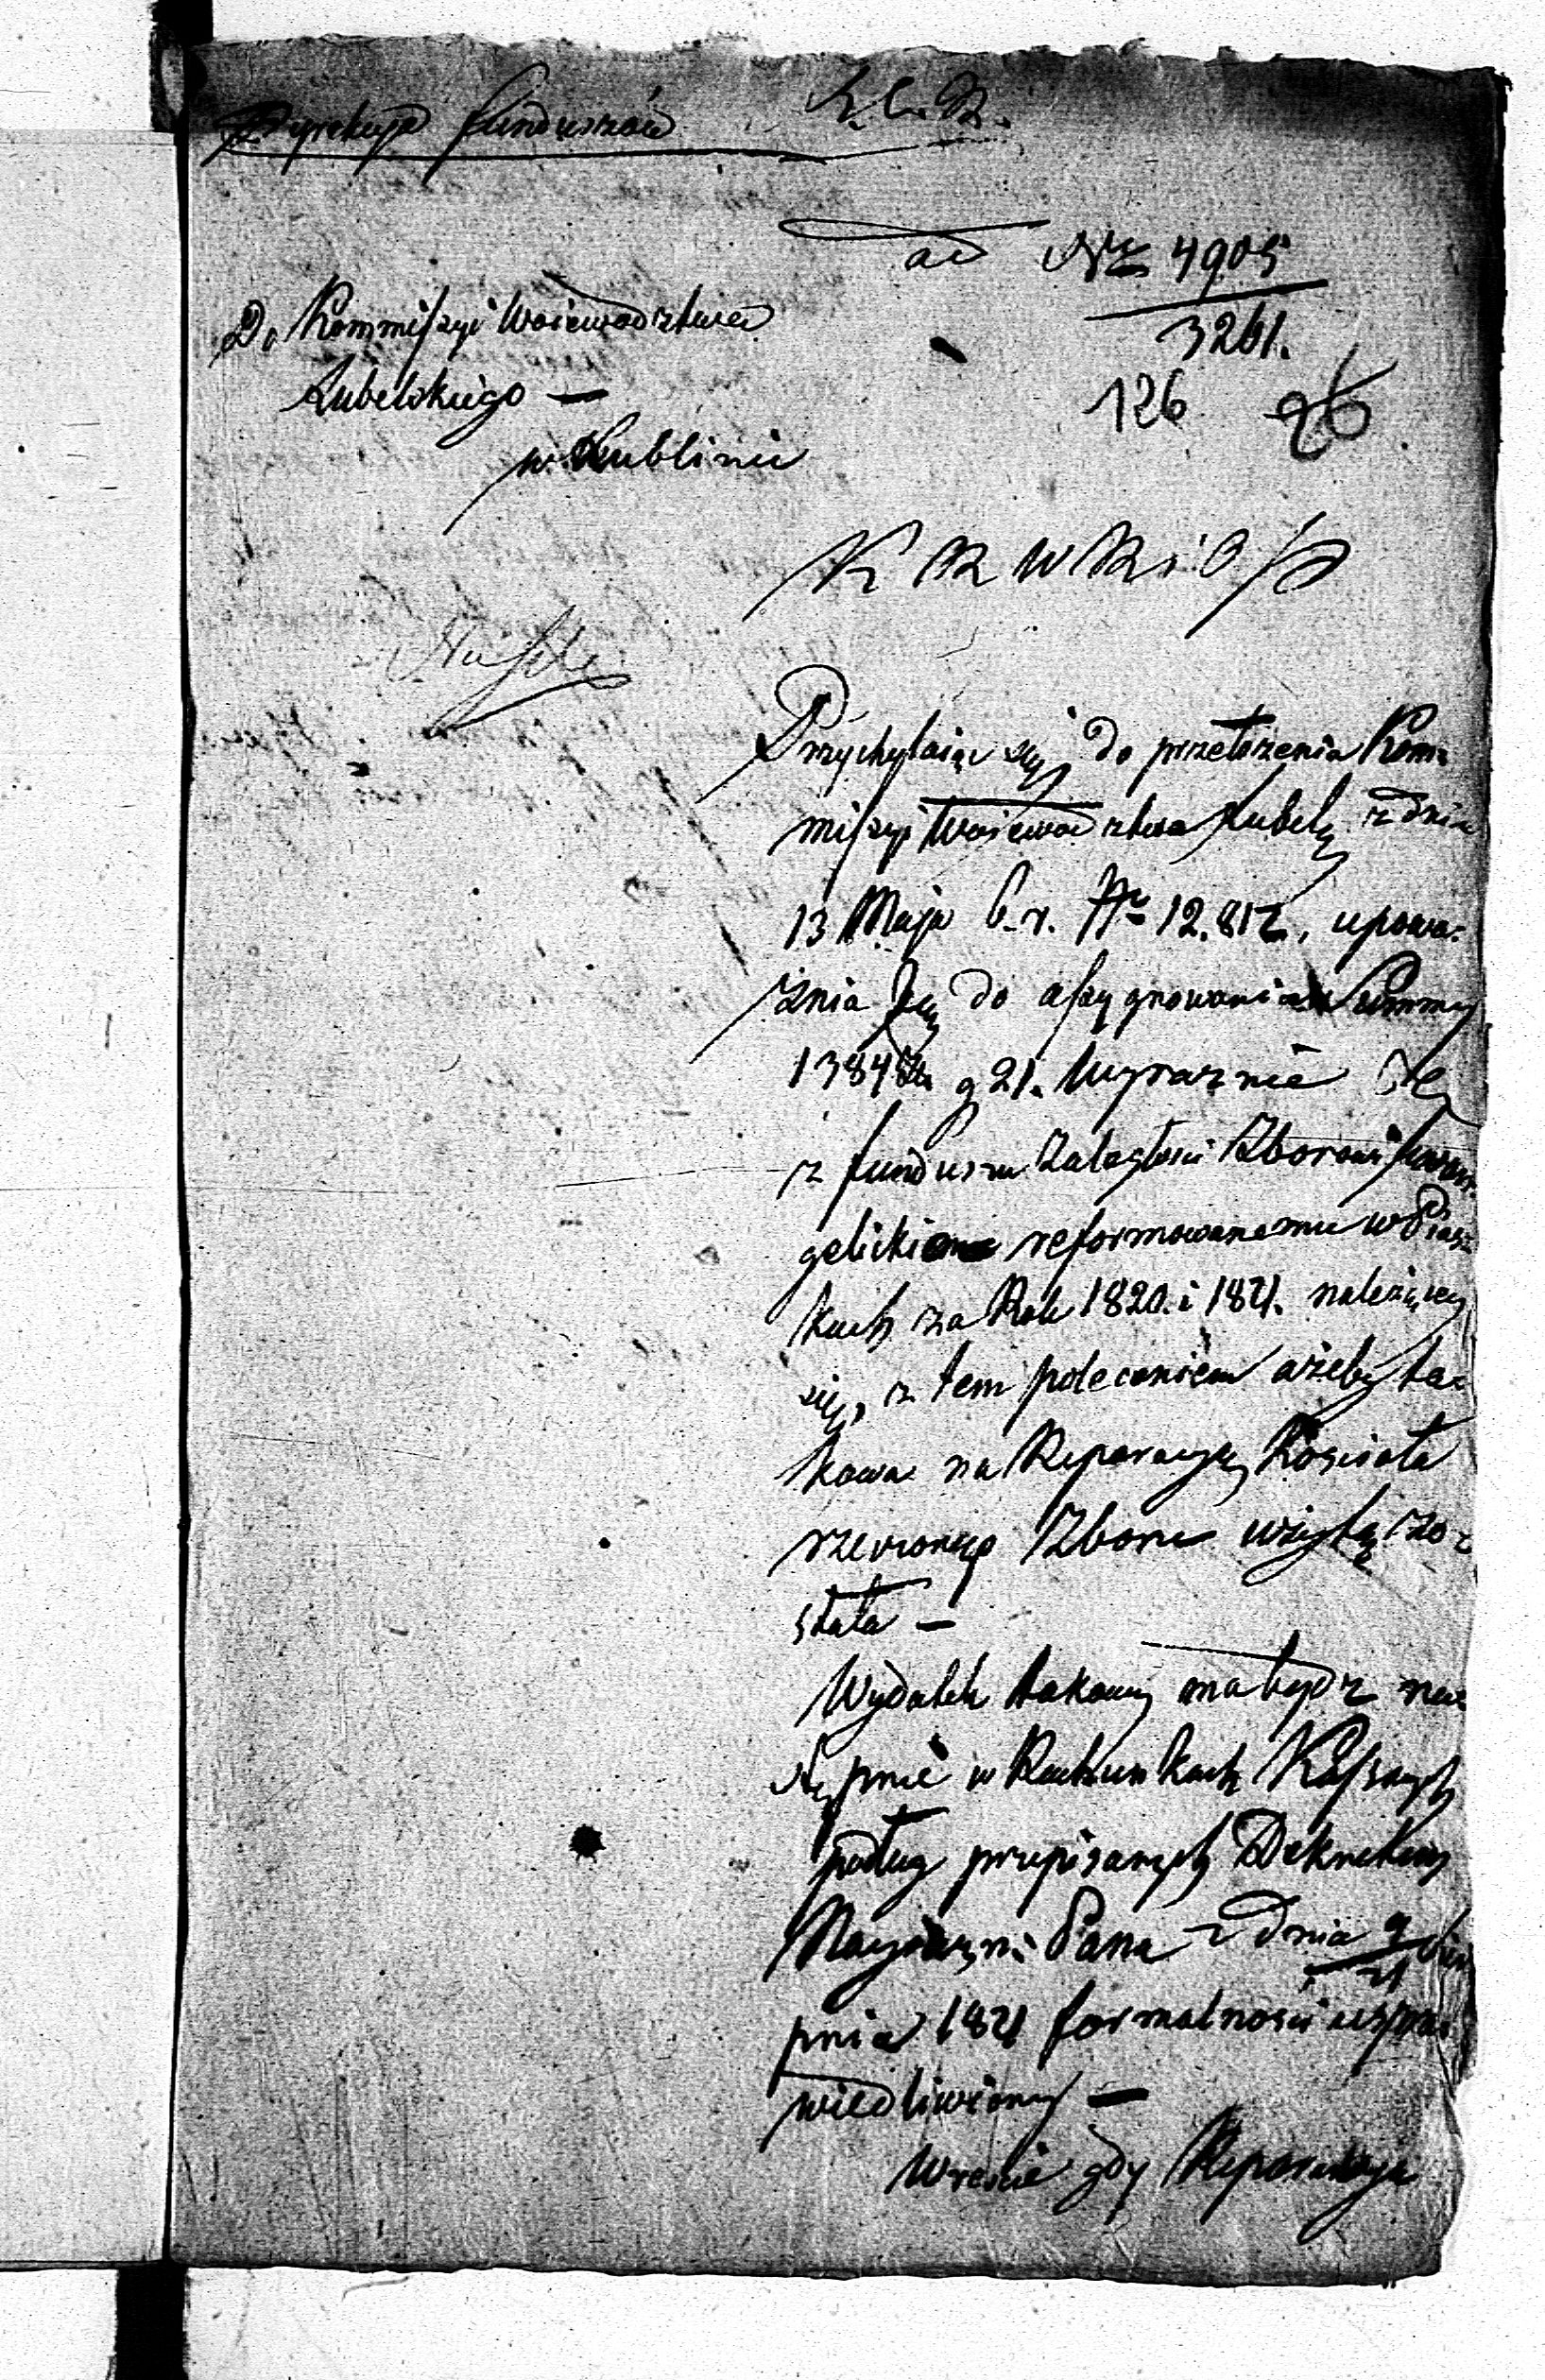 Dyrekcya funduszów
ad Nr 4905
3261.
126 26
Do Kommissyi Woiewództwa
Lubelskiego —
w Lublinie
K R W R i O P
Przychylaiąc się do przełożenia Kom-
missyi Woiewództwa Lubel. z dnia
13 Maja b. r. Nr 12.812, upowa-
żnia Ją do assygnowania Summy
1384 g 21. Wyraznie
z funduszu Zaległości Zborowi Ewan-
gelickiemu reformowanemu w Pias-
kach za Rok 1820. i 1821. należącey
się, z tem poleceniem ażeby ta-
kowa na Reperacyę Kościoła
rzeczonego Zboru użytą zo-
stała —
Wydatek takowy ma bydz na-
stępnie w Rachunkach Kassowych
podług przepisanych Dekretem
Nayjaśn. Pana z dnia 9/21 Sier-
pnia 1821 formalności uspra-
wiedliwiony —
Wreście gdy Reperacya